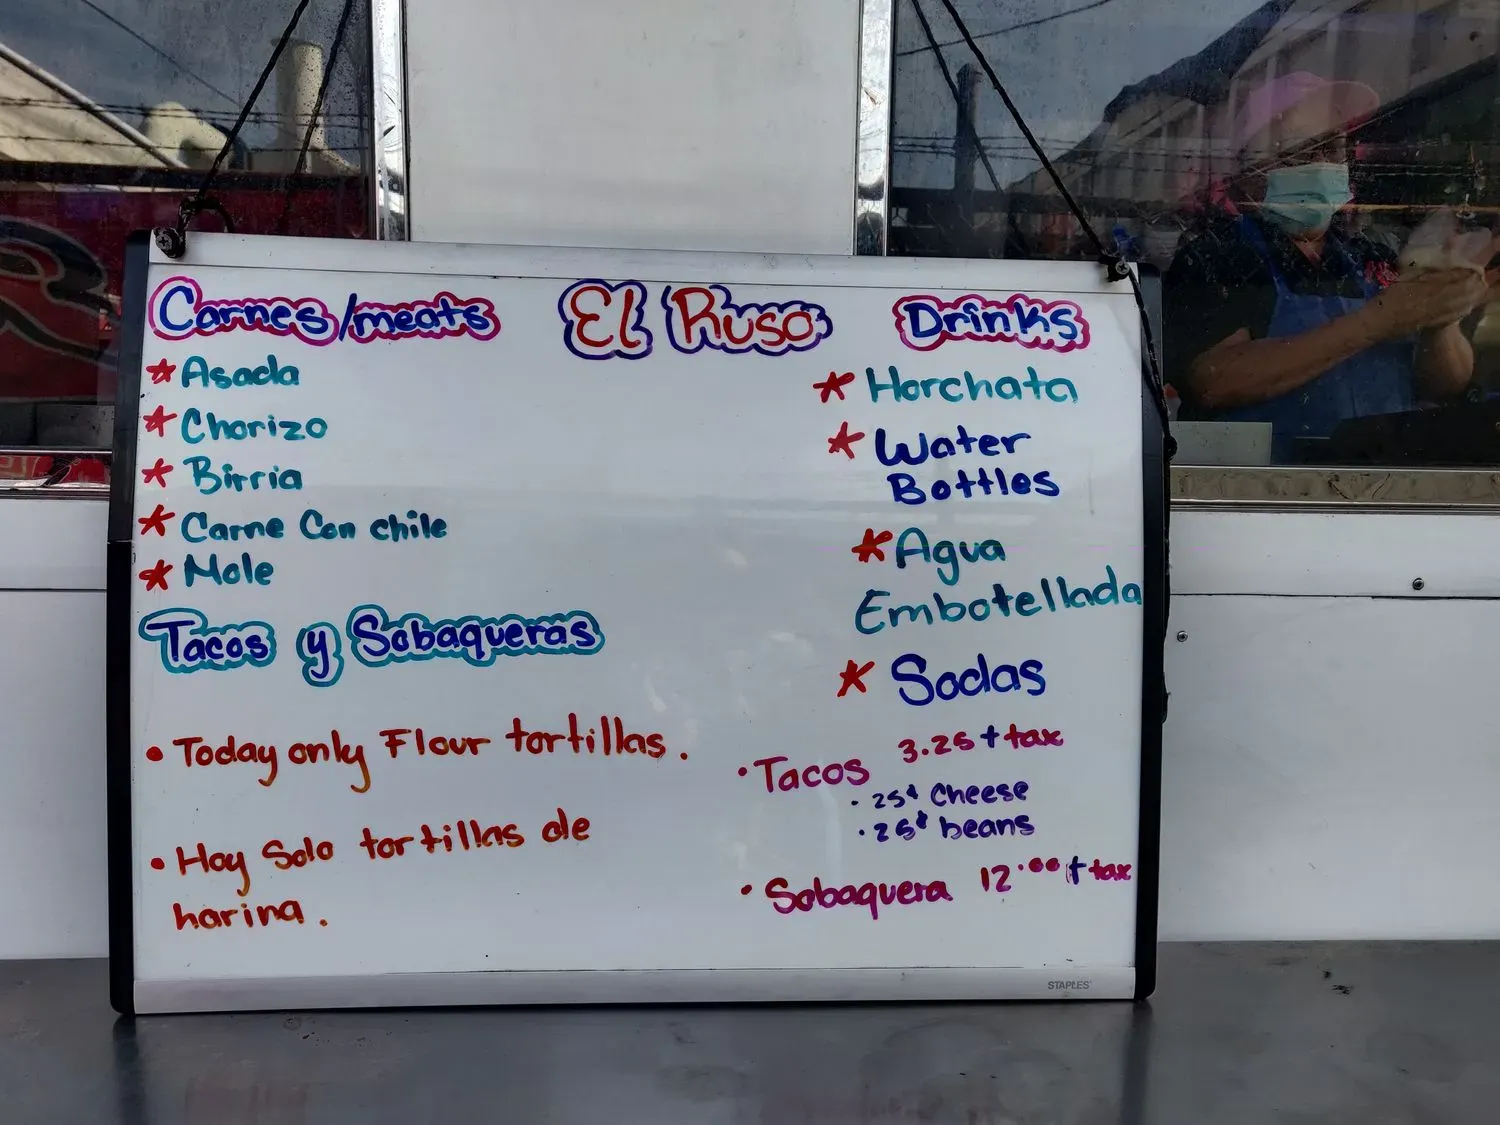 El Ruso
Carnes/meats
* Asada
* Chorizo
* Birria
* Carne Con chile
* Mole
Tacos y Sobaqueras
• Today only Flour tortillas.
• Hoy Solo tortillas de
harina.
Drinks
* Horchata
* Water
Bottles
* Agua
Embotellada
* Sodas
• Tacos 3.25 + tax
• 25¢ Cheese
• 25¢ beans
• Sobaquera 12.00 + tax
STAPLES